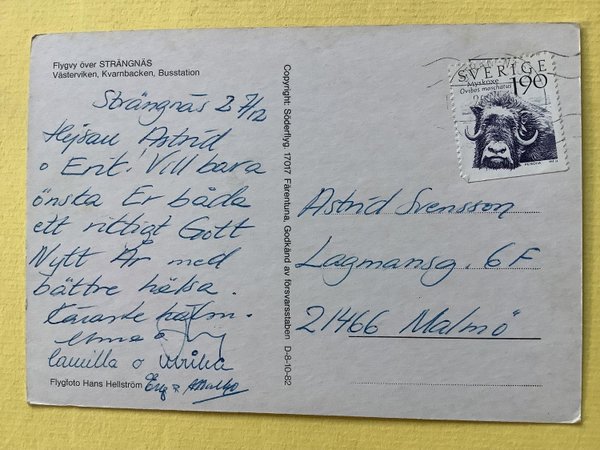 Flygvy över STRÄNGNÄS
Västerviken, Kvarnbacken, Busstation
Strängnäs 27/12
Hejsan Astrid
o Erit! Vill bara
önska Er båda
ett riktigt Gott
Nytt År med
bättre hälsa.
Käraste häln.
o
Camilla o Ulrika
Flygfoto Hans Hellström
Copyright: Söderflyg, 17017 Färentuna, Godkänd av försvarsstaben D-8-10-82
SVERIGE
Myskoxe
Ovibos moschatus
190
Astrid Svensson
Lagmansg. 6 F
21466 Malmö